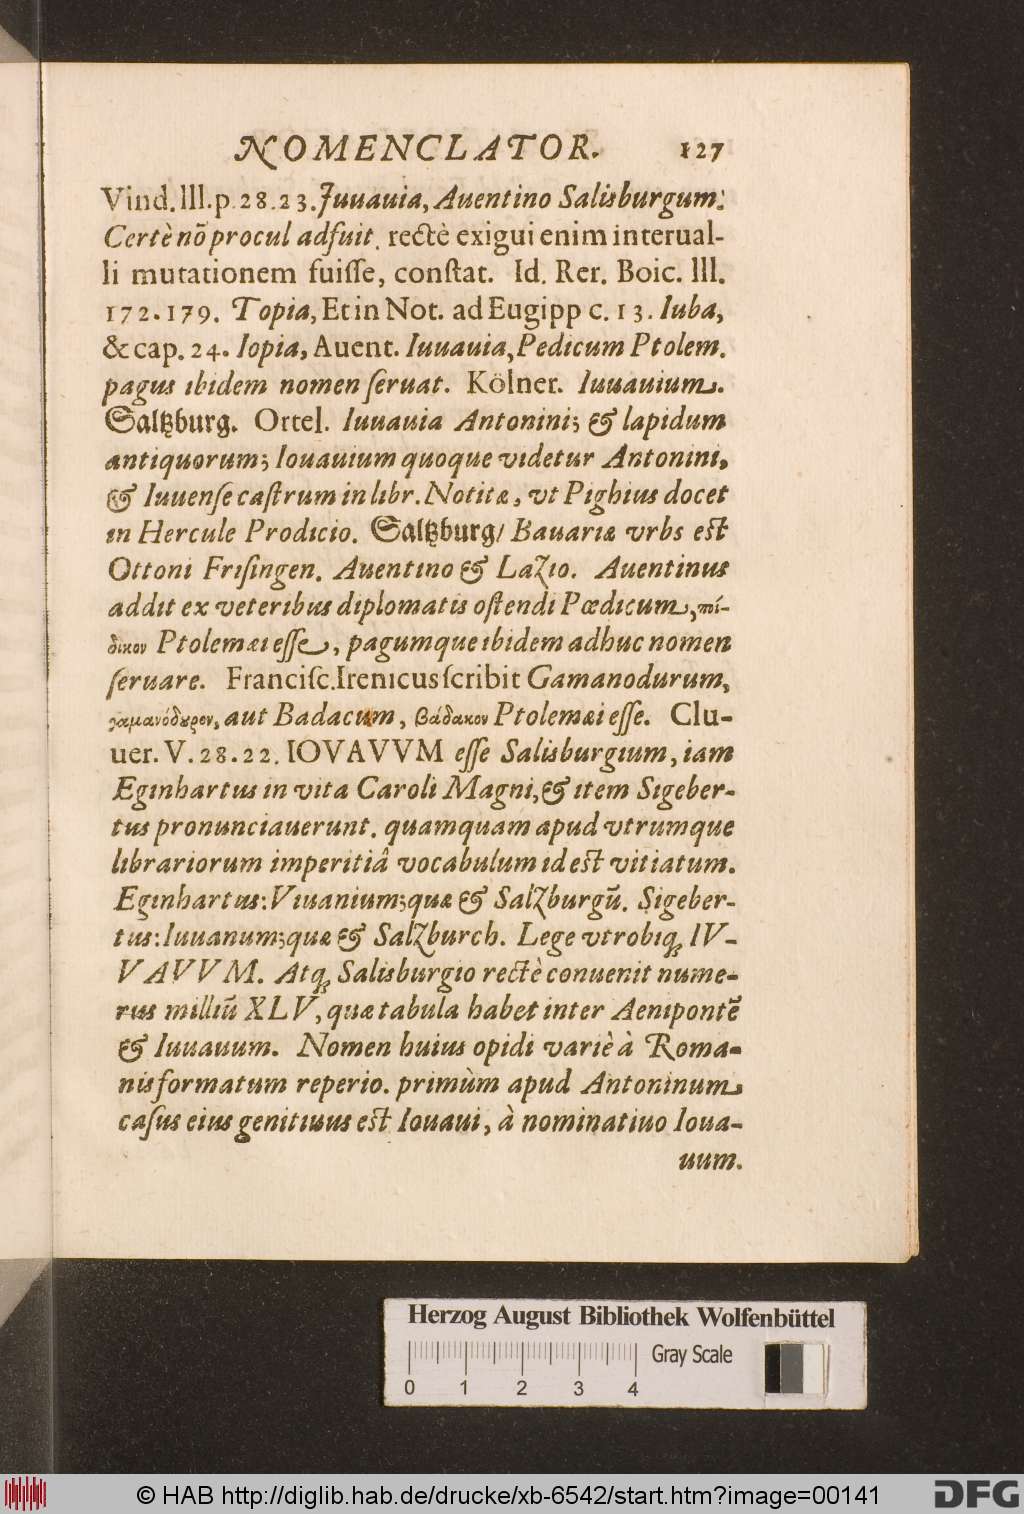 NOMENCLATOR. 127
Vind. lll. p. 28. 23. Juuauia, Auentino Salisburgum:
Certè nõ procul adfuit. rectè exigui enim interual-
li mutationem fuiſſe, conſtat. Id. Rer. Boic. lll.
172. 179. Topia, Et in Not. ad Eugipp c. 13. Iuba,
& cap. 24. Iopia, Auent. Iuuauia, Pedicum Ptolem.
pagus ibidem nomen ſeruat. Kölner. Iuuauium.
Saltzburg. Ortel. Iuuauia Antonini; & lapidum
antiquorum; Iouauium quoque videtur Antonini,
& Iuuenſe caſtrum in libr. Notitæ, vt Pighius docet
in Hercule Prodicio. Saltzburg/ Bauariæ vrbs eſt
Ottoni Friſingen. Auentino & Lazio. Auentinus
addit ex veteribus diplomatis oſtendi Pœdicum, πί-
δικον Ptolemæi eſſe, pagumque ibidem adhuc nomen
ſeruare. Franciſc. Irenicus ſcribit Gamanodurum,
γαμανόδουρον, aut Badacum, βάδακον Ptolemæi eſſe. Clu-
uer. V. 28. 22. IOVAVVM eſſe Salisburgium, iam
Eginhartus in vita Caroli Magni, & item Sigeber-
tus pronunciauerunt. quamquam apud vtrumque
librariorum imperitiâ vocabulum id eſt vitiatum.
Eginhartus: Viuanium; quæ & Salzburgũ. Sigeber-
tus: Iuuanum; quæ & Salzburch. Lege vtrobiq; IV-
VAVVM. Atq; Salisburgio rectè conuenit nume-
rus milliũ XLV, quæ tabula habet inter Aenipontẽ
& Iuuauum. Nomen huius opidi variè à Roma-
nis formatum reperio. primùm apud Antoninum
caſus eius genitiuus eſt Iouaui, à nominatiuo Ioua-
uum.
Herzog August Bibliothek Wolfenbüttel
Gray Scale
0 1 2 3 4
© HAB http://diglib.hab.de/drucke/xb-6542/start.htm?image=00141
DFG